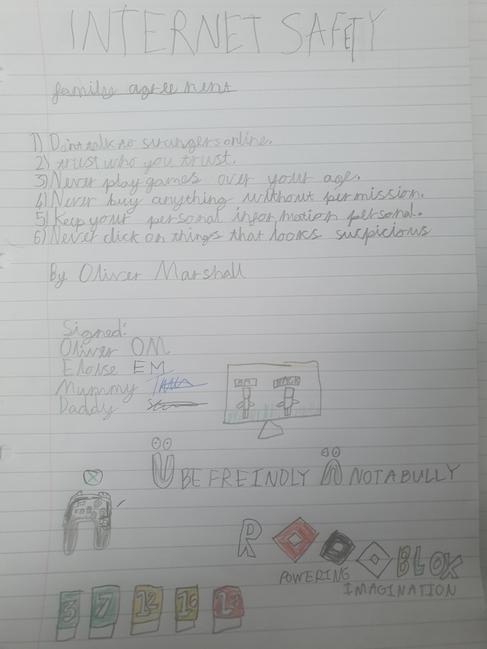 INTERNET SAFETY
family agreement
1) Dont talk to strangers online.
2) trust who you trust.
3) Never play games over your age.
4) Never buy anything without permission.
5) Keep your personal information personal.
6) Never click on things that looks suspicious
By Oliver Marshall
Signed:
Oliver OM
Eloise EM
Mummy
Daddy
BE FREINDLY NOT A BULLY
X
R BLOX
POWERING IMAGINATION
3 7 12 16 18